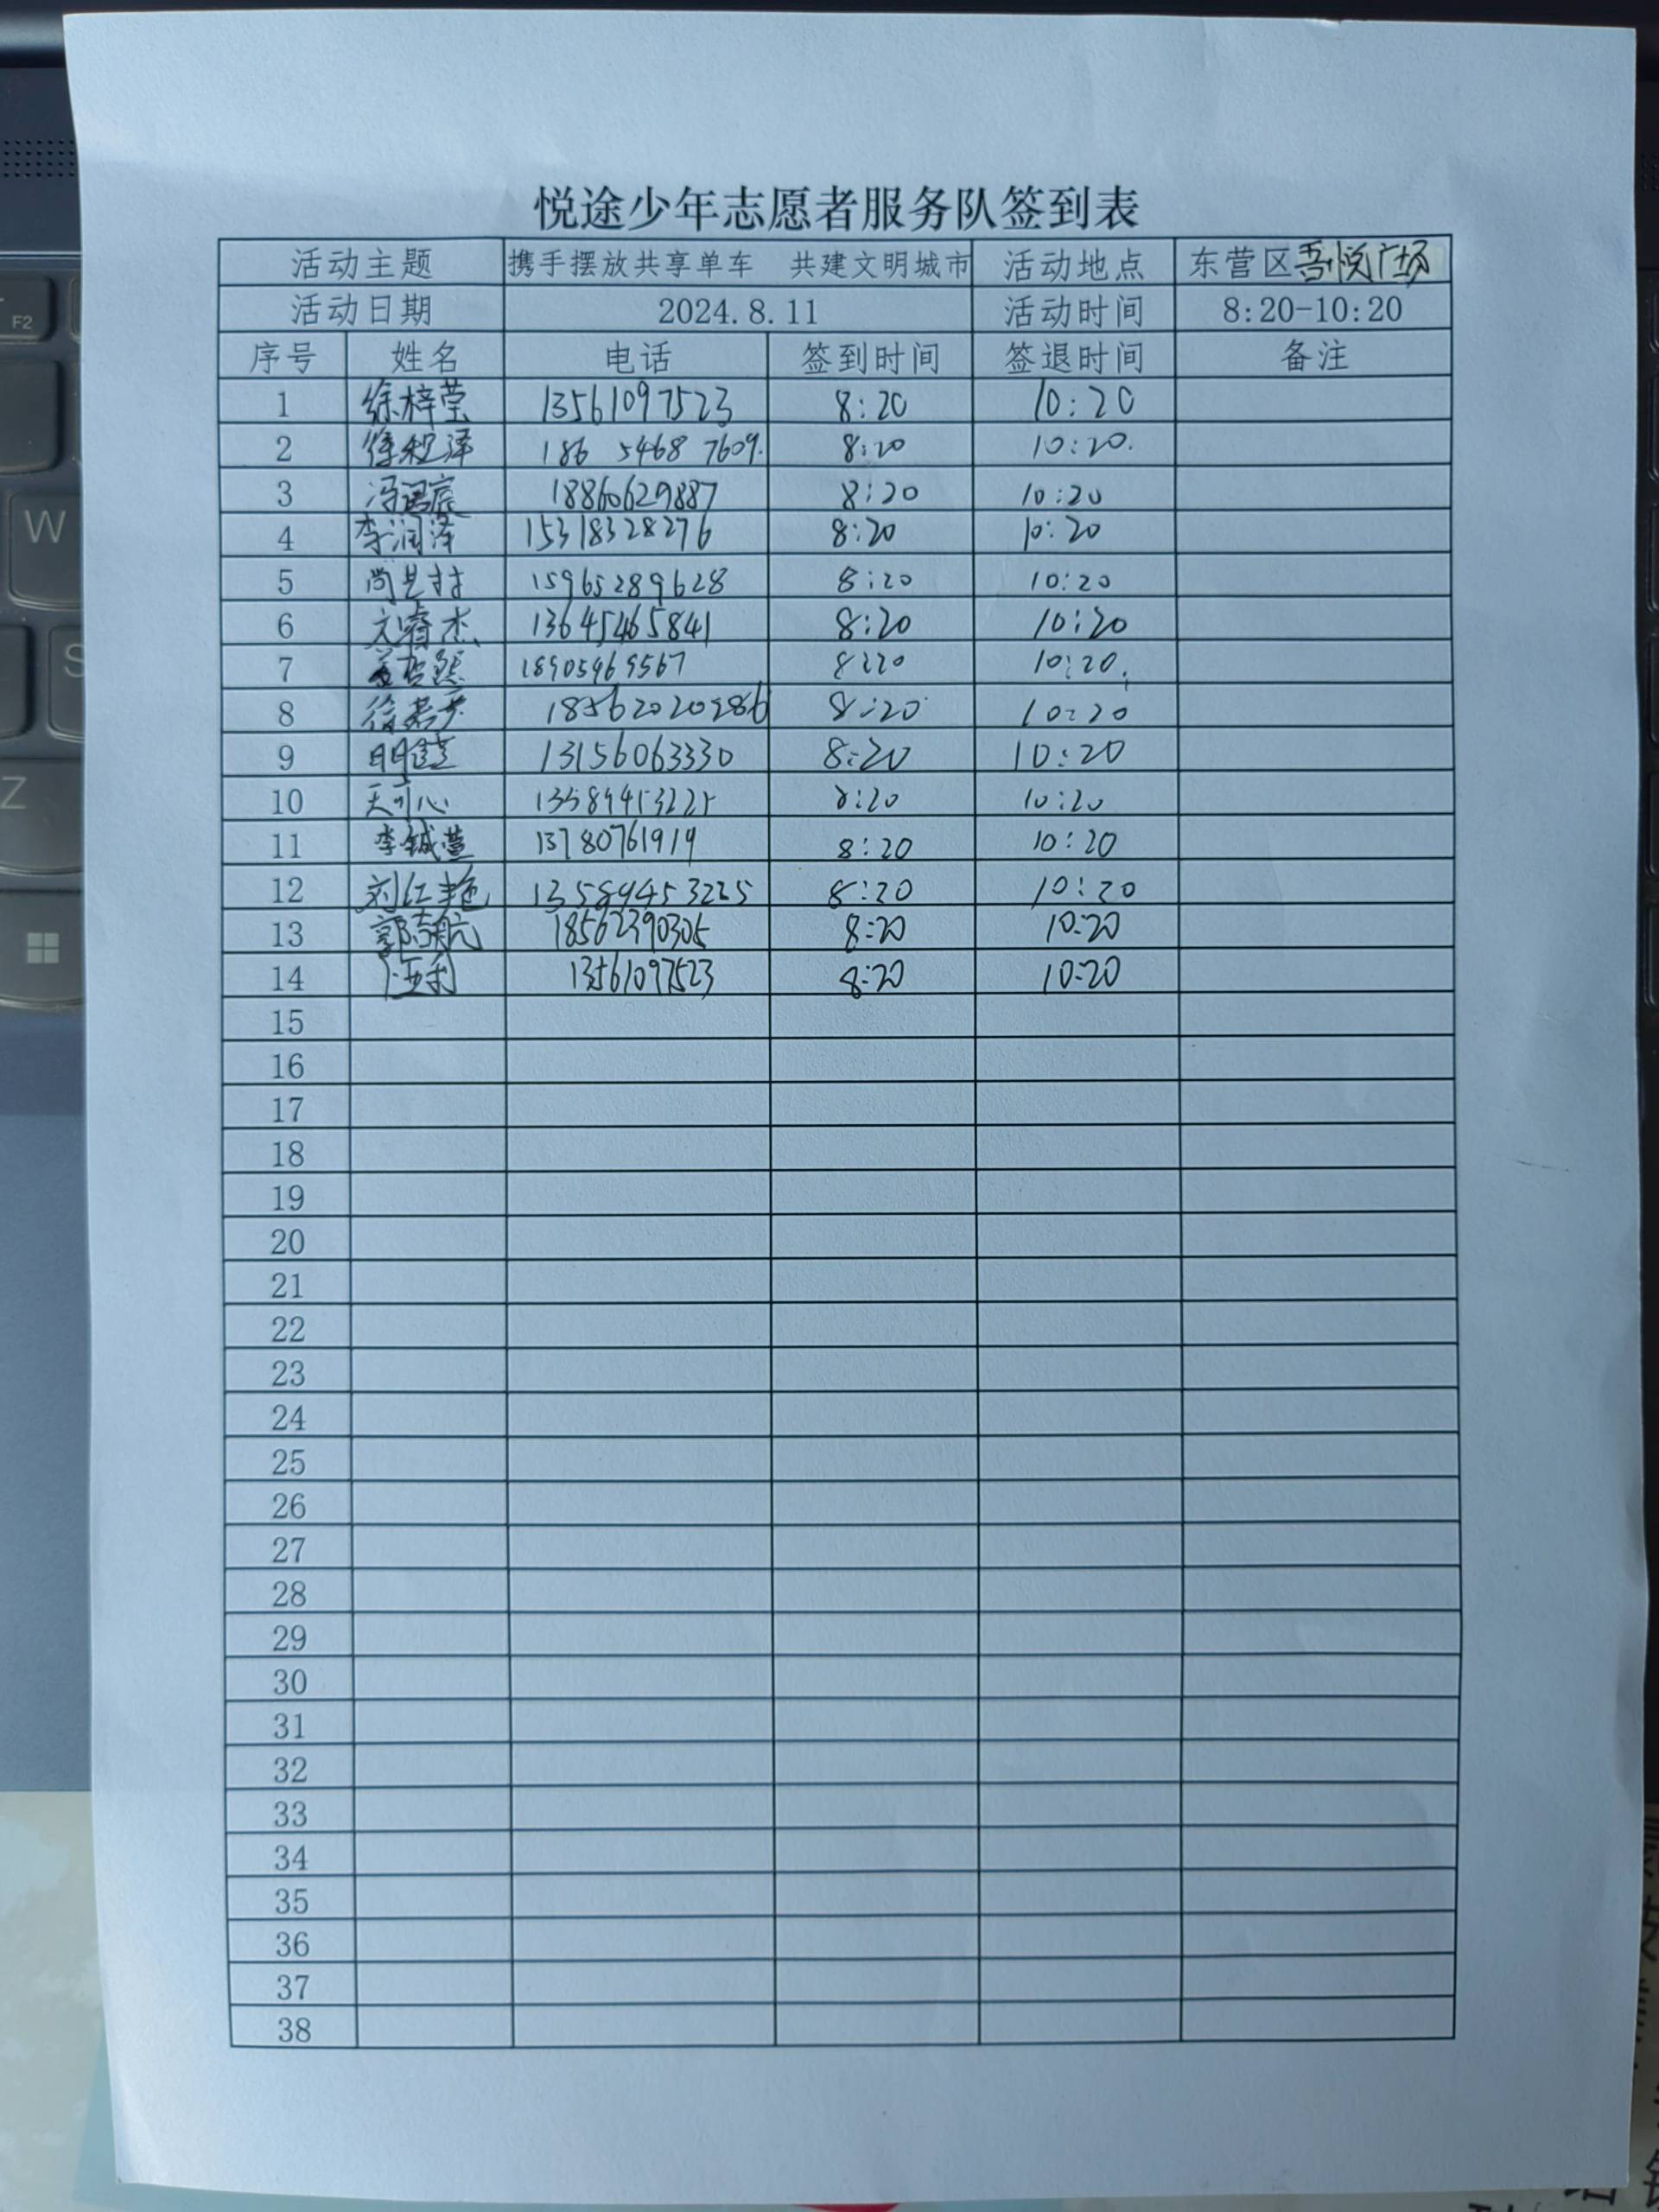 悦途少年志愿者服务队签到表
活动主题 携手摆放共享单车 共建文明城市 活动地点 东营区吾悦广场
活动日期 2024.8.11 活动时间 8:20-10:20
序号 姓名 电话 签到时间 签退时间 备注
1 徐梓莹 13561097523 8:20 10:20
2 泽 186 5468 7609. 8:20 10:20.
3 冯 18860629887 8:20 10:20
4 李润泽 15318328276 8:20 10:20
5 尚艺 15965289628 8:20 10:20
6 睿杰 13645465841 8:20 10:20
7 18905469567 8:20 10:20.
8 徐 8:20 10:20
9 明 13156063330 8:20 10:20
10 心 8:20 10:20
11 李铖萱 13780761919 8:20 10:20
12 刘红艳 13589453225 8:20 10:20
13 郭 航 18562390305 8:20 10:20
14 13561097523 8:20 10:20
15
16
17
18
19
20
21
22
23
24
25
26
27
28
29
30
31
32
33
34
35
36
37
38
F2
W
S
Z